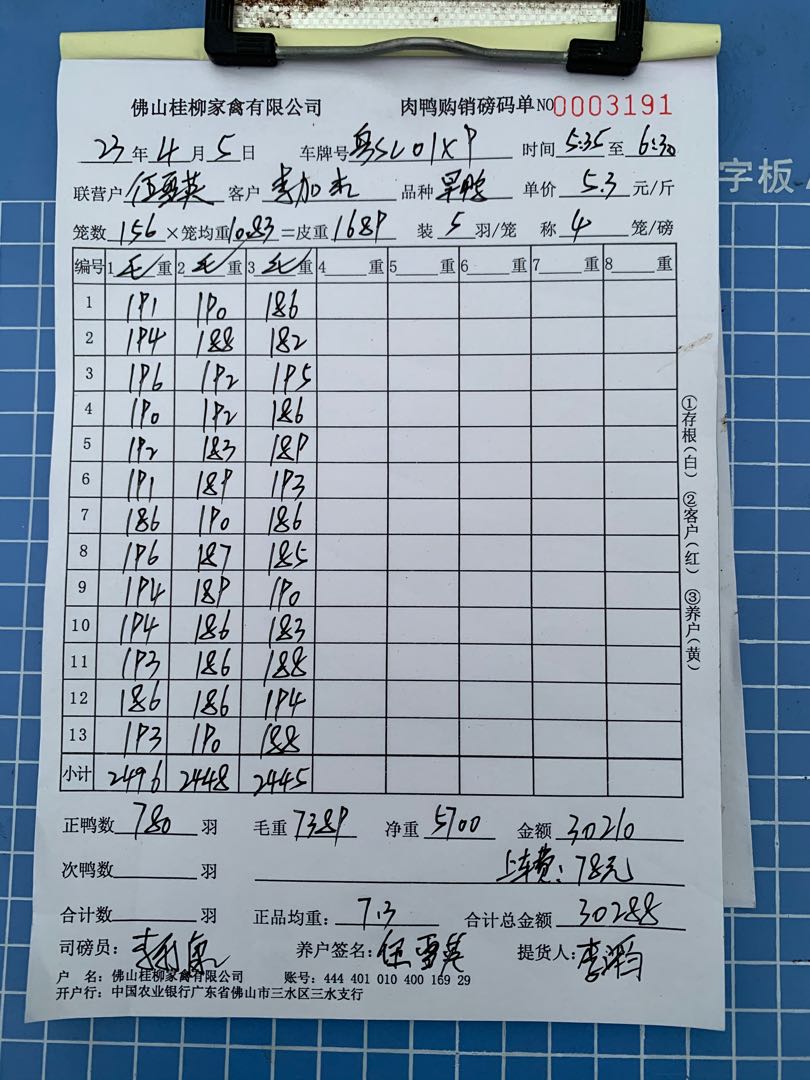 佛山桂柳家禽有限公司 肉鸭购销磅码单 NO 0003191
23 年 4 月 5 日 车牌号 粤SL01X9 时间 5:35 至 6:30
联营户 伍雪英 客户 李加 品种 旱鸭 单价 5.3 元/斤
笼数 156 ×笼均重 10.83 =皮重 1689 装 5 羽/笼 称 4 笼/磅
编号 1 毛 重 2 毛 重 3 毛 重 4 重 5 重 6 重 7 重 8 重
1 191 190 186
2 194 188 182
3 196 192 195
4 190 192 186
5 192 183 189
6 191 189 193
7 186 190 186
8 196 187 185
9 194 189 190
10 194 186 183
11 193 186 188
12 186 186 194
13 193 190 188
小计 2496 2448 2445
①存根(白) ②客户(红) ③养户(黄)
正鸭数 780 羽 毛重 7389 净重 5700 金额 30210
次鸭数 羽 上车费:78元
合计数 羽 正品均重: 7.3 合计总金额 30288
司磅员: 养户签名: 伍雪英 提货人: 李滔
户 名: 佛山桂柳家禽有限公司 账号: 444 401 010 400 169 29
开户行: 中国农业银行广东省佛山市三水区三水支行
字板